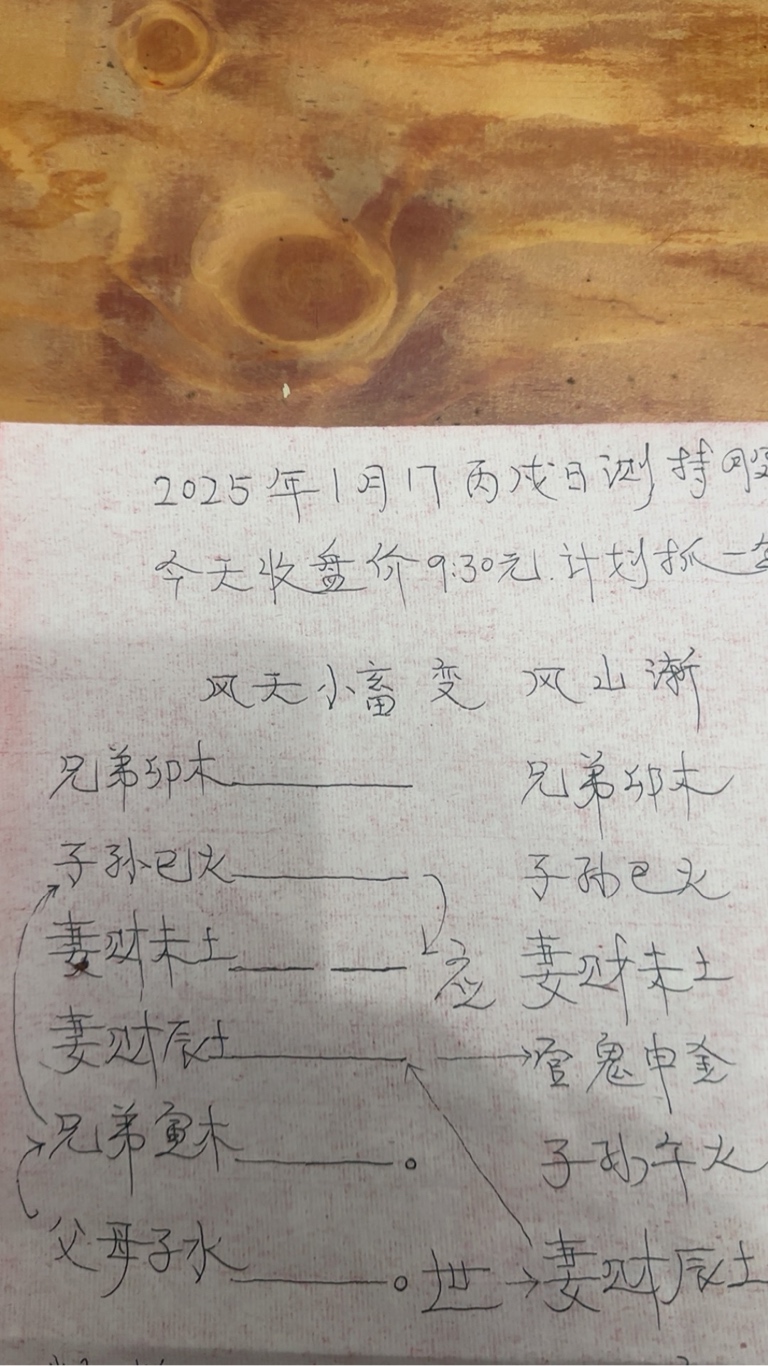 2025年1月17丙戌日测持股
今天收盘价9.30元.计划抓一
风天小畜 变 风山渐
兄弟卯木 兄弟卯木
子孙巳火 子孙巳火
妻财未土 应 妻财未土
妻财辰土 官鬼申金
兄弟寅木 子孙午火
父母子水 世 妻财辰土